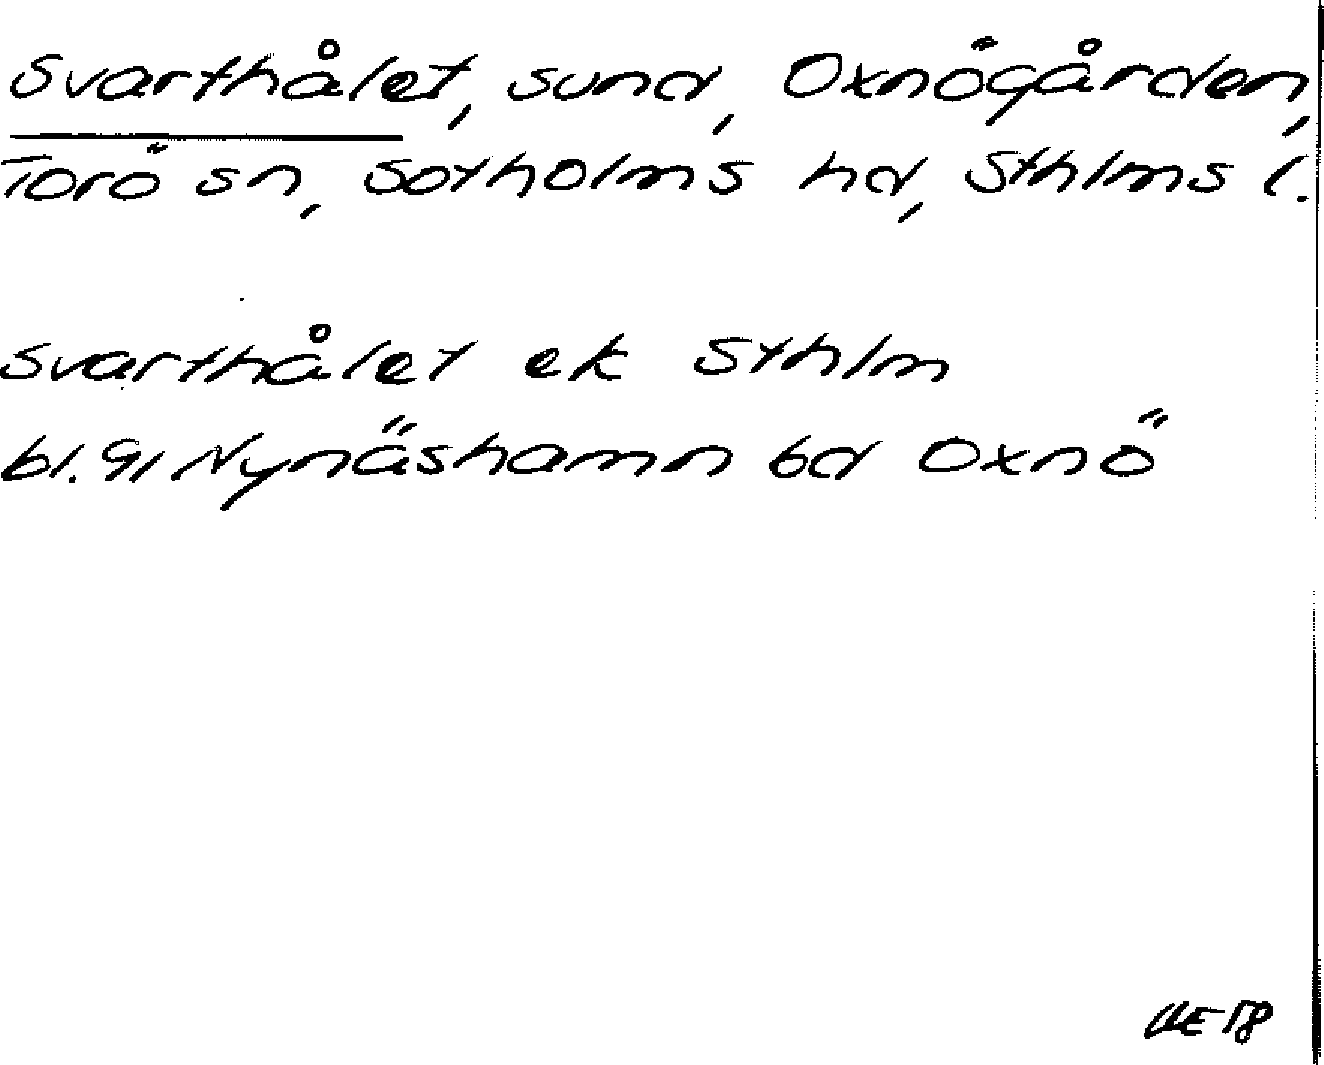 Svarthålet, sund, Oxnögården,
Torö sn, Sotholms hd, Sthlms l.
Svarthålet ek Sthlm
bl. 91 Nynäshamn bd Oxnö